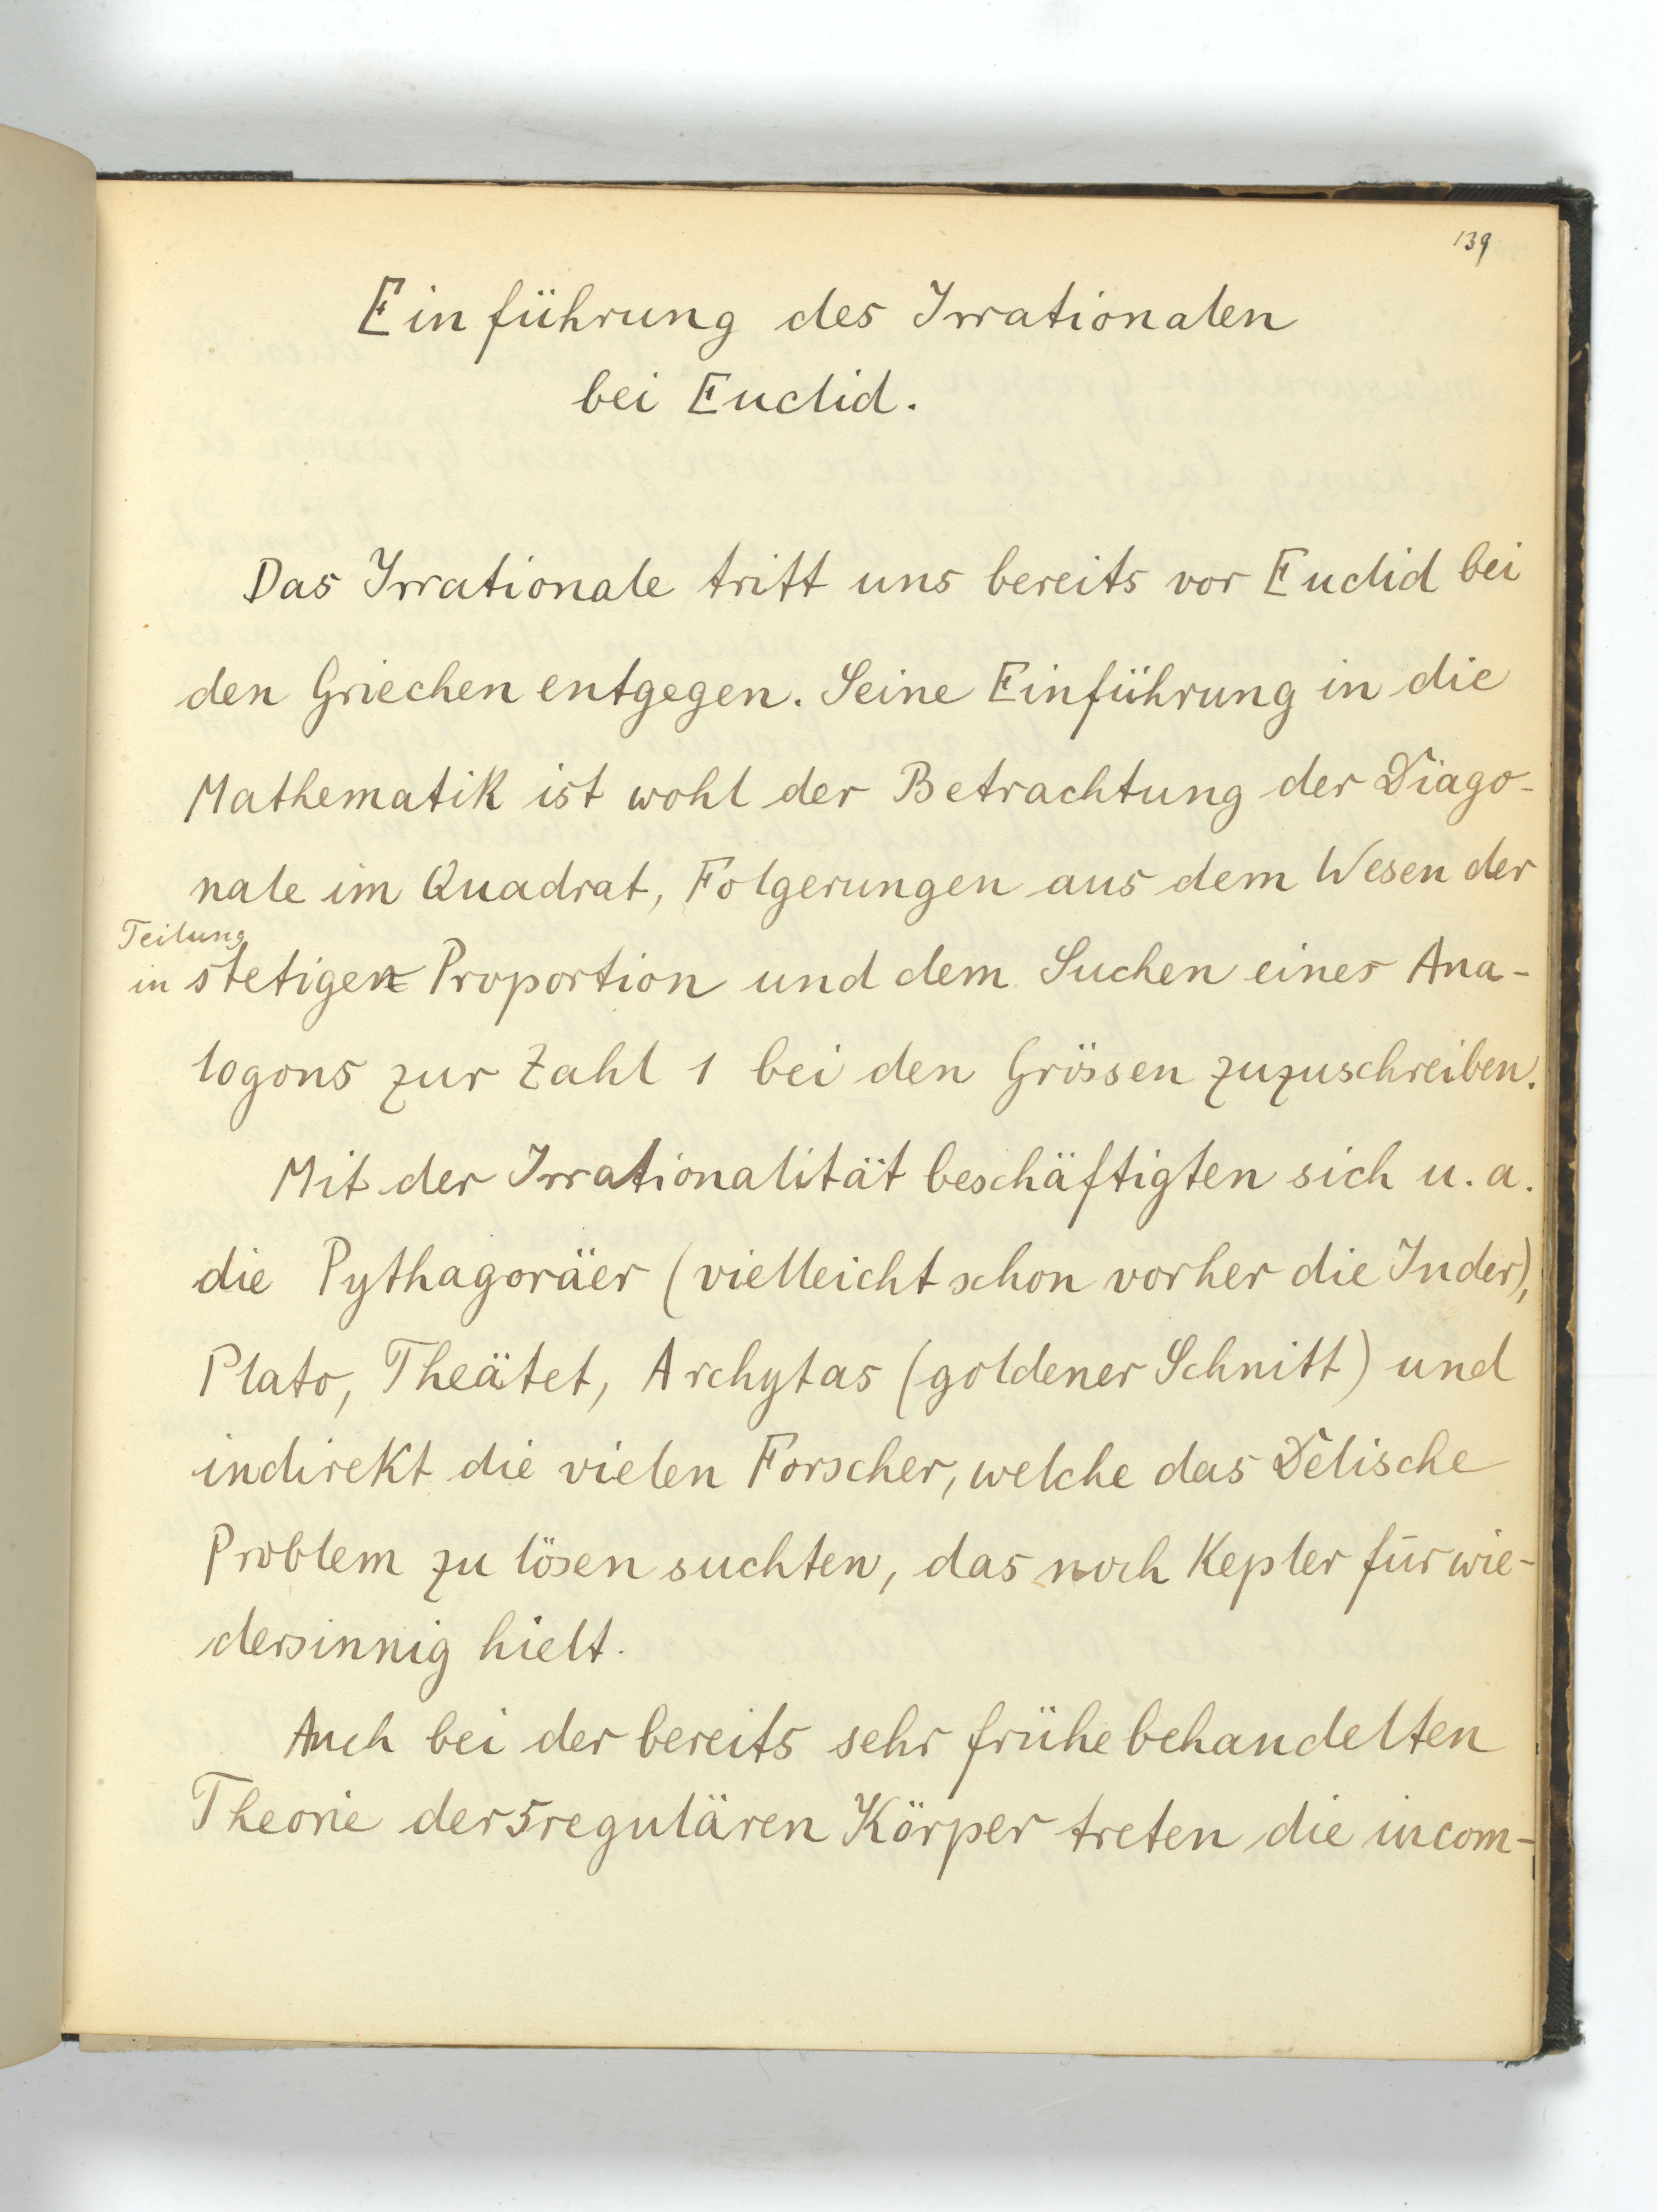 139
Einführung des Irrationalen
bei Euclid.
Das Irrationale tritt uns bereits vor Euclid bei
den Griechen entgegen. Seine Einführung in die
Mathematik ist wohl der Betrachtung der Diago-
nale im Quadrat, Folgerungen aus dem Wesen der
Teilung
in stetigen Proportion und dem Suchen eines Ana-
logons zur Zahl 1 bei den Grössen zuzuschreiben.
Mit der Irrationalität beschäftigten sich u. a.
die Pythagoräer (vielleicht schon vorher die Inder),
Plato, Theätet, Archytas (goldener Schnitt) und
indirekt die vielen Forscher, welche das Delische
Problem zu lösen suchten, das noch Kepler für wie-
dersinnig hielt.
Auch bei der bereits sehr frühe behandelten
Theorie der 5 regulären Körper treten die incom-